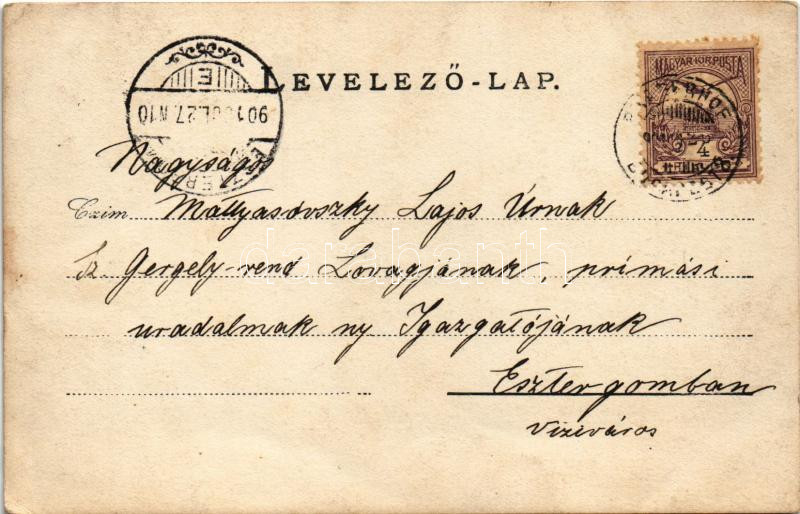 LEVELEZŐ-LAP.
MAGYAR KIR. POSTA
E
901 JUL. 27. N10
4
Nagyságos
Czim Mattyasóvszky Lajos Úrnak
Sz Gergely-rend Lovagjának, prímási
uradalmak ny Igazgatójának
Esztergomban
Viziváros
darabanth